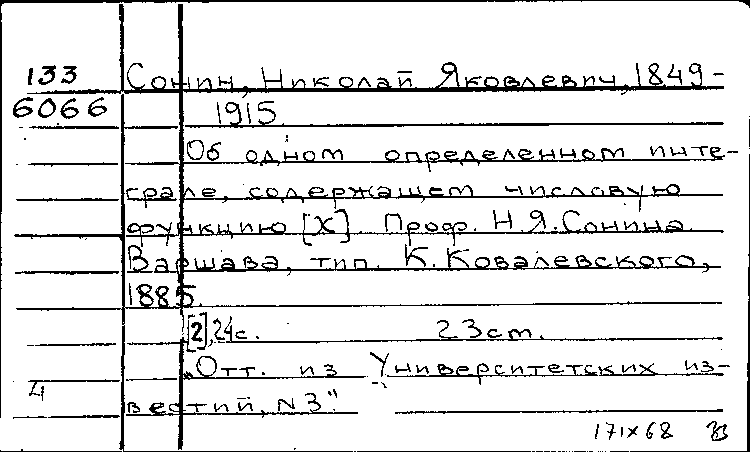 133 Сонин, Николай Яковлевич, 1849-
6066 1915.
Об одном определенном инте-
грале, содержащем числовую
функцию [X]. Проф. Н.Я.Сонина.
Варшава, тип. К.Ковалевского,
1885.
[2], 24с. 23см.
„Отт. из Университетских из-
4 вестий, N3".
171x68